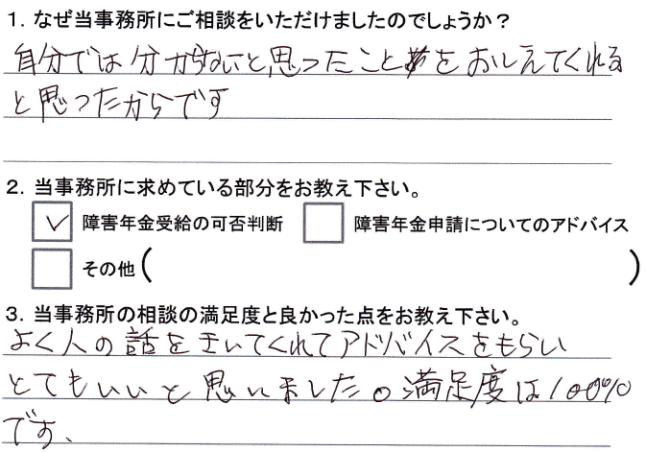 1. なぜ当事務所にご相談をいただけましたのでしょうか？
自分では分からないと思ったことをおしえてくれる
と思ったからです
2. 当事務所に求めている部分をお教え下さい。
✓ 障害年金受給の可否判断 障害年金申請についてのアドバイス
その他 ( )
3. 当事務所の相談の満足度と良かった点をお教え下さい。
よく人の話をきいてくれてアドバイスをもらい
とてもいいと思いました。満足度は100%
です、